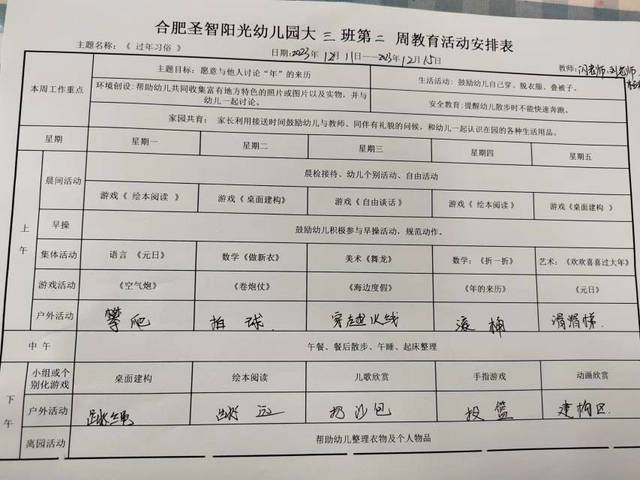 合肥圣智阳光幼儿园大 三 班第 二 周教育活动安排表
主题名称：《 过年习俗 》 日期：2023年12月11日——2023年12月15日 教师：闪老师、刘老师、
本周工作重点
主题目标：愿意与他人讨论“年”的来历
生活活动：鼓励幼儿自己穿、脱衣服、叠被子。
环境创设：帮助幼儿共同收集富有地方特色的照片或图片以及实物，并与
幼儿一起讨论。
安全教育：提醒幼儿散步时不能快速奔跑。
家园共育： 家长利用接送时间鼓励幼儿与教师、同伴有礼貌的问候，和幼儿一起认识在园的各种生活用品。
星期 星期一 星期二 星期三 星期四 星期五
上午
晨间活动 晨检接待、幼儿个别活动、自由活动
游戏《 绘本阅读 》 游戏《 桌面建构》 游戏《 自由谈话》 游戏《 绘本阅读》 游戏《桌面建构 》
早操 鼓励幼儿积极参与早操活动，规范动作。
集体活动 语言 《元日》 数学《做新衣》 美术《舞龙》 数学：《折一折》 艺术：《欢欢喜喜过大年》
游戏活动 《空气炮》 《卷炮仗》 《海边度假》 《年的来历》 《元日》
户外活动 攀爬 拍球 穿越火线 滚桶 滑滑梯
中 午 午餐、餐后散步、午睡、起床整理
下午
小组或个
别化游戏 桌面建构 绘本阅读 儿歌欣赏 手指游戏 动画欣赏
户外活动 跳绳 跳远 扔沙包 投篮 建构区
离园活动 帮助幼儿整理衣物及个人物品